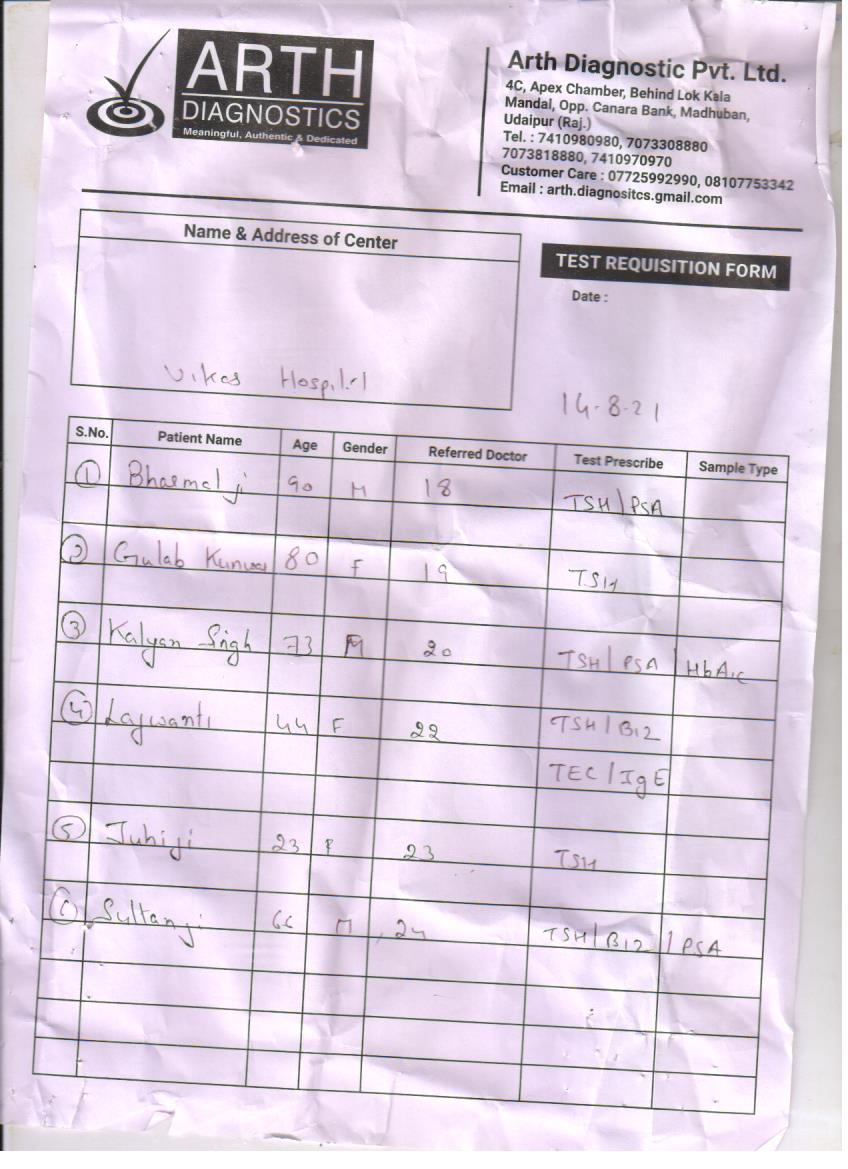 ARTH
DIAGNOSTICS
Meaningful, Authentic & Dedicated
Arth Diagnostic Pvt. Ltd.
4C, Apex Chamber, Behind Lok Kala
Mandal, Opp. Canara Bank, Madhuban,
Udaipur (Raj.)
Tel. : 7410980980, 7073308880
7073818880, 7410970970
Customer Care : 07725992990, 08107753342
Email : arth.diagnositcs.gmail.com
Name & Address of Center
Vikas Hospital
TEST REQUISITION FORM
Date :
14-8-21
S.No. Patient Name Age Gender Referred Doctor Test Prescribe Sample Type
1 Bharmal ji 90 M 18 TSH/PSA
2 Gulab Kunwar 80 F 19 TSH
3 Kalyan Singh 73 M 20 TSH/PSA/HbA1c
4 Lajwanti 44 F 22 TSH/B12
TEC/IgE
5 Juhiji 23 F 23 TSH
6 Sultanji 66 M 24 TSH/B12/PSA